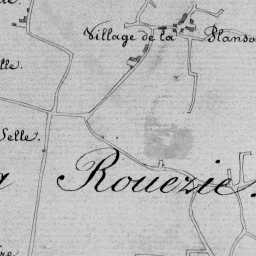 Village de la Planso
lle.
Selle.
a Rouezie.
re